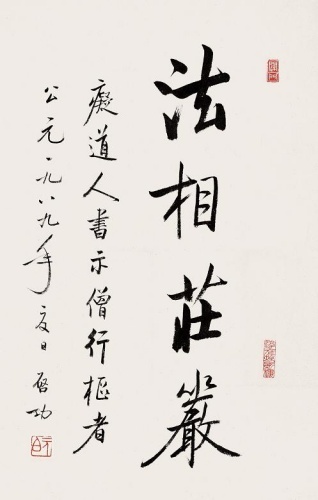 法相莊嚴
癡道人書示僧行樞者
公元一九八九年夏日 啓功